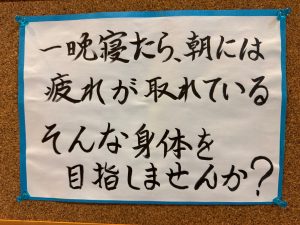 一晩寝たら、朝には
疲れが取れている
そんな身体を
目指しませんか?